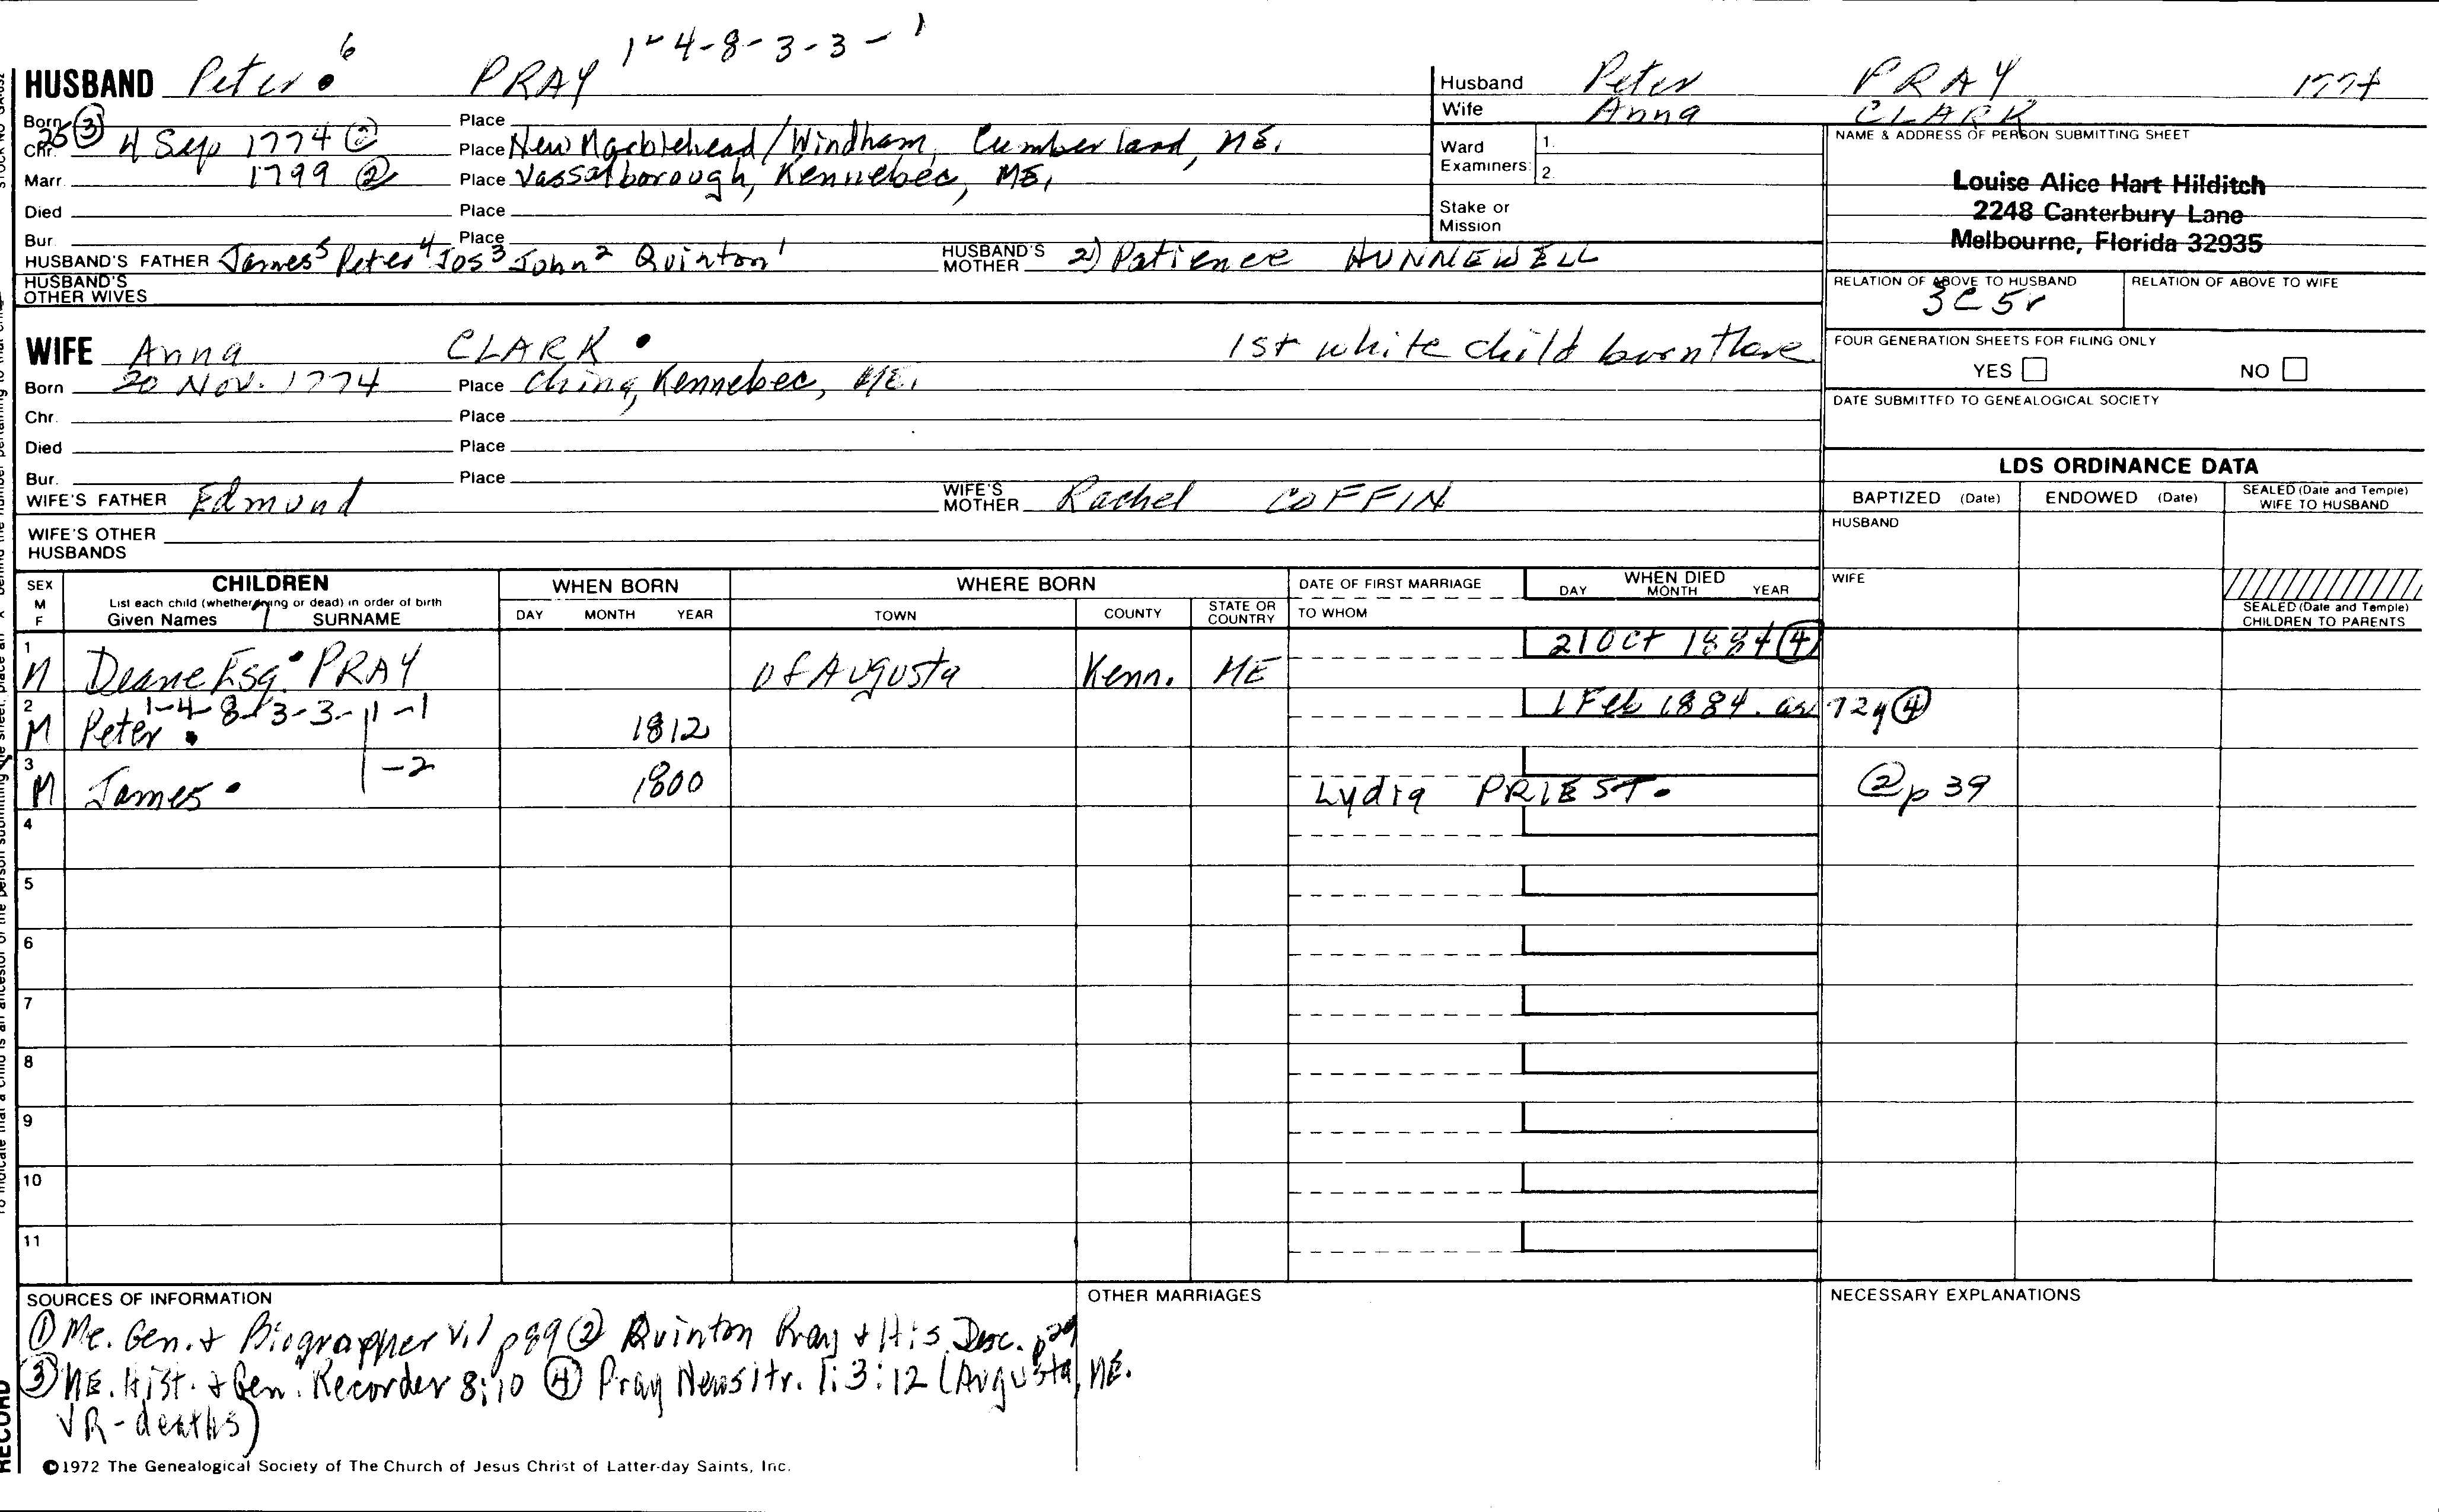 1-4-8-3-3-1
HUSBAND Peter 6 PRAY
Born 25 ③ Place
Chr. 4 Sep 1774 ② Place New Marblehead/Windham, Cumberland, ME.
Marr. 1799 ② Place Vassalborough, Kennebec, ME,
Died Place
Bur. Place
HUSBAND'S FATHER James5 Peter4 Jos3 John2 Quinton1 HUSBAND'S MOTHER 2) Patience HUNNEWELL
HUSBAND'S OTHER WIVES
Husband Peter PRAY 1774
Wife Anna CLARK
Ward Examiners: 1. 2.
Stake or Mission
NAME & ADDRESS OF PERSON SUBMITTING SHEET
Louise Alice Hart Hilditch
2248 Canterbury Lane
Melbourne, Florida 32935
RELATION OF ABOVE TO HUSBAND RELATION OF ABOVE TO WIFE
3C 5r
WIFE Anna CLARK 1st white child born there
Born 20 Nov. 1774 Place China, Kennebec, ME,
Chr. Place
Died Place
Bur. Place
WIFE'S FATHER Edmund WIFE'S MOTHER Rachel COFFIN
WIFE'S OTHER HUSBANDS
FOUR GENERATION SHEETS FOR FILING ONLY
YES NO
DATE SUBMITTED TO GENEALOGICAL SOCIETY
LDS ORDINANCE DATA
BAPTIZED (Date) ENDOWED (Date) SEALED (Date and Temple) WIFE TO HUSBAND
HUSBAND
WIFE
SEALED (Date and Temple) CHILDREN TO PARENTS
SEX M F CHILDREN WHEN BORN WHERE BORN DATE OF FIRST MARRIAGE WHEN DIED
List each child (whether living or dead) in order of birth DAY MONTH YEAR
Given Names SURNAME DAY MONTH YEAR TOWN COUNTY STATE OR COUNTRY TO WHOM
1 M Deane Esq. PRAY of Augusta Kenn. ME 21 Oct 1884 ④
1-4-8-3-3-1-1
2 M Peter 1812 1 Feb 1884 72y ④
-2
3 M James 1800 Lydia PRIEST ② p 39
4
5
6
7
8
9
10
11
SOURCES OF INFORMATION OTHER MARRIAGES NECESSARY EXPLANATIONS
① Me. Gen. & Biographer v.1 p89 ② Quinton Pray & His Desc.
③ ME. Hist. & Gen. Recorder 8:10 ④ Pray Newsltr. 1:3:12 (Augusta, ME.
VR-deaths)
©1972 The Genealogical Society of The Church of Jesus Christ of Latter-day Saints, Inc.
RECORD